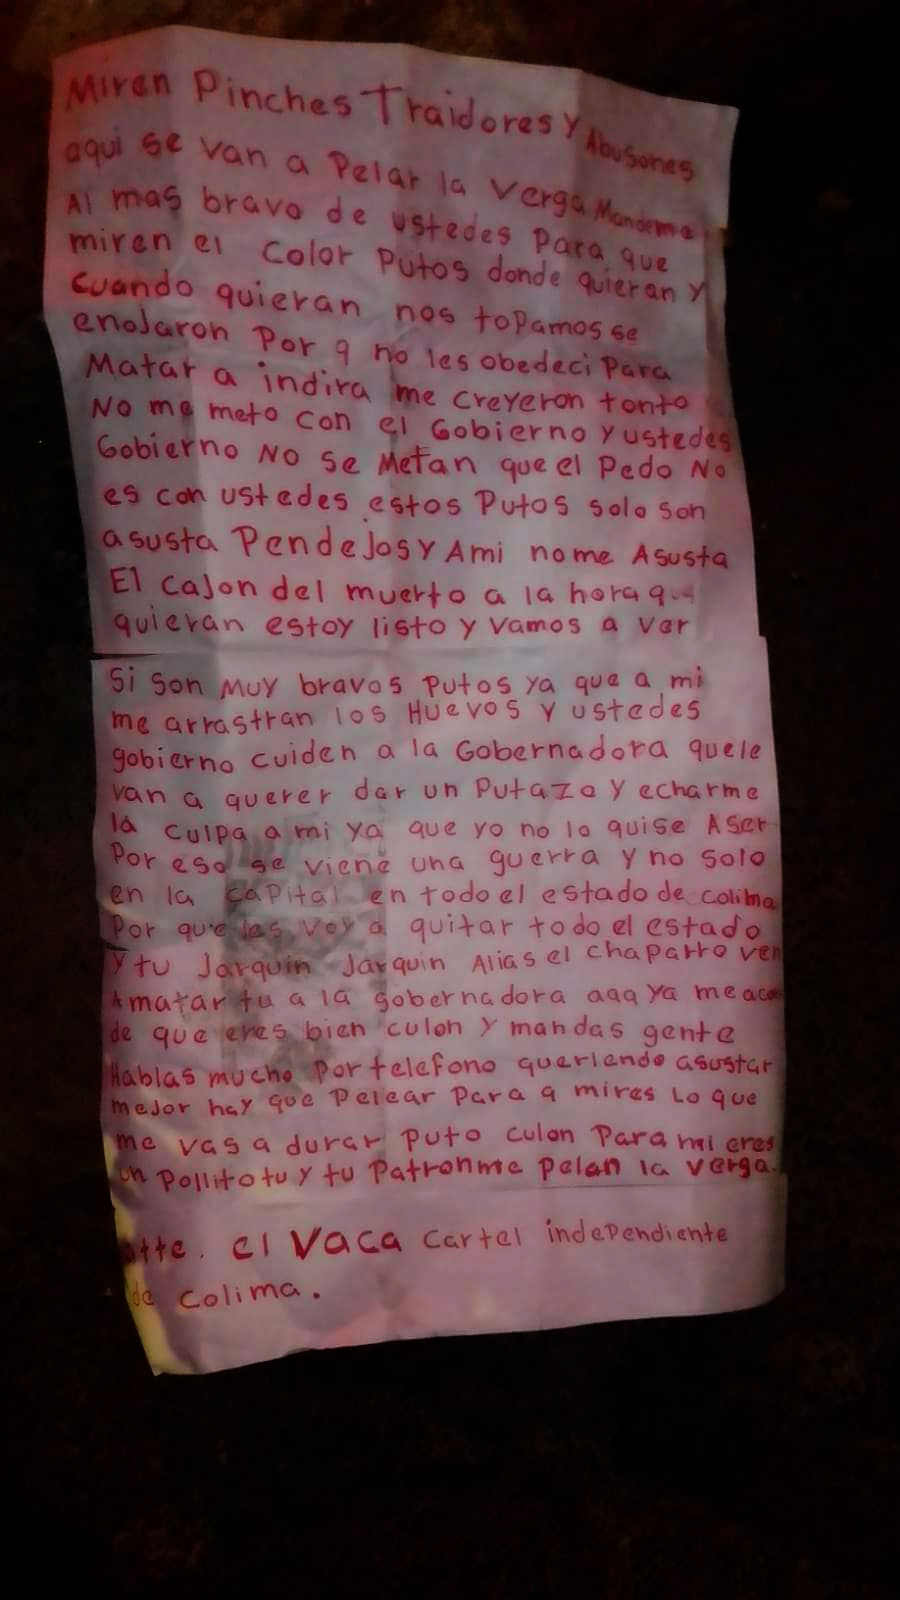 Miren Pinches Traidores y Abusones
aqui se van a Pelar la verga Mandeme
Al mas bravo de ustedes Para que
miren el color Putos donde quieran y
cuando quieran nos topamos se
enojaron Por q no les obedeci Para
Matar a indira me creyeron tonto
No me meto con el Gobierno y ustedes
Gobierno No se Metan que el Pedo No
es con ustedes estos Putos solo son
asusta Pendejos y Ami no me Asusta
El cajon del muerto a la hora que
quieran estoy listo y vamos a ver
Si son Muy bravos Putos ya que a mi
me arrastran los Huevos y ustedes
gobierno cuiden a la Gobernadora quele
van a querer dar un Putazo y echarme
la culpa a mi ya que yo no lo quise Aser
Por eso se viene una guerra y no solo
en la capital en todo el estado de colima
Por que les voy a quitar todo el estado
y tu Jarquin Jarquin Alias el chaparro ven
A matar tu a la gobernadora aaa ya me
de que eres bien culon y mandas gente
Hablas mucho Por telefono queriendo asustar
mejor hay que Pelear Para q mires Lo que
me vas a durar Puto culon Para mi eres
un Pollito tu y tu Patron me Pelan la verga.
atte. el Vaca cartel independiente
de colima.